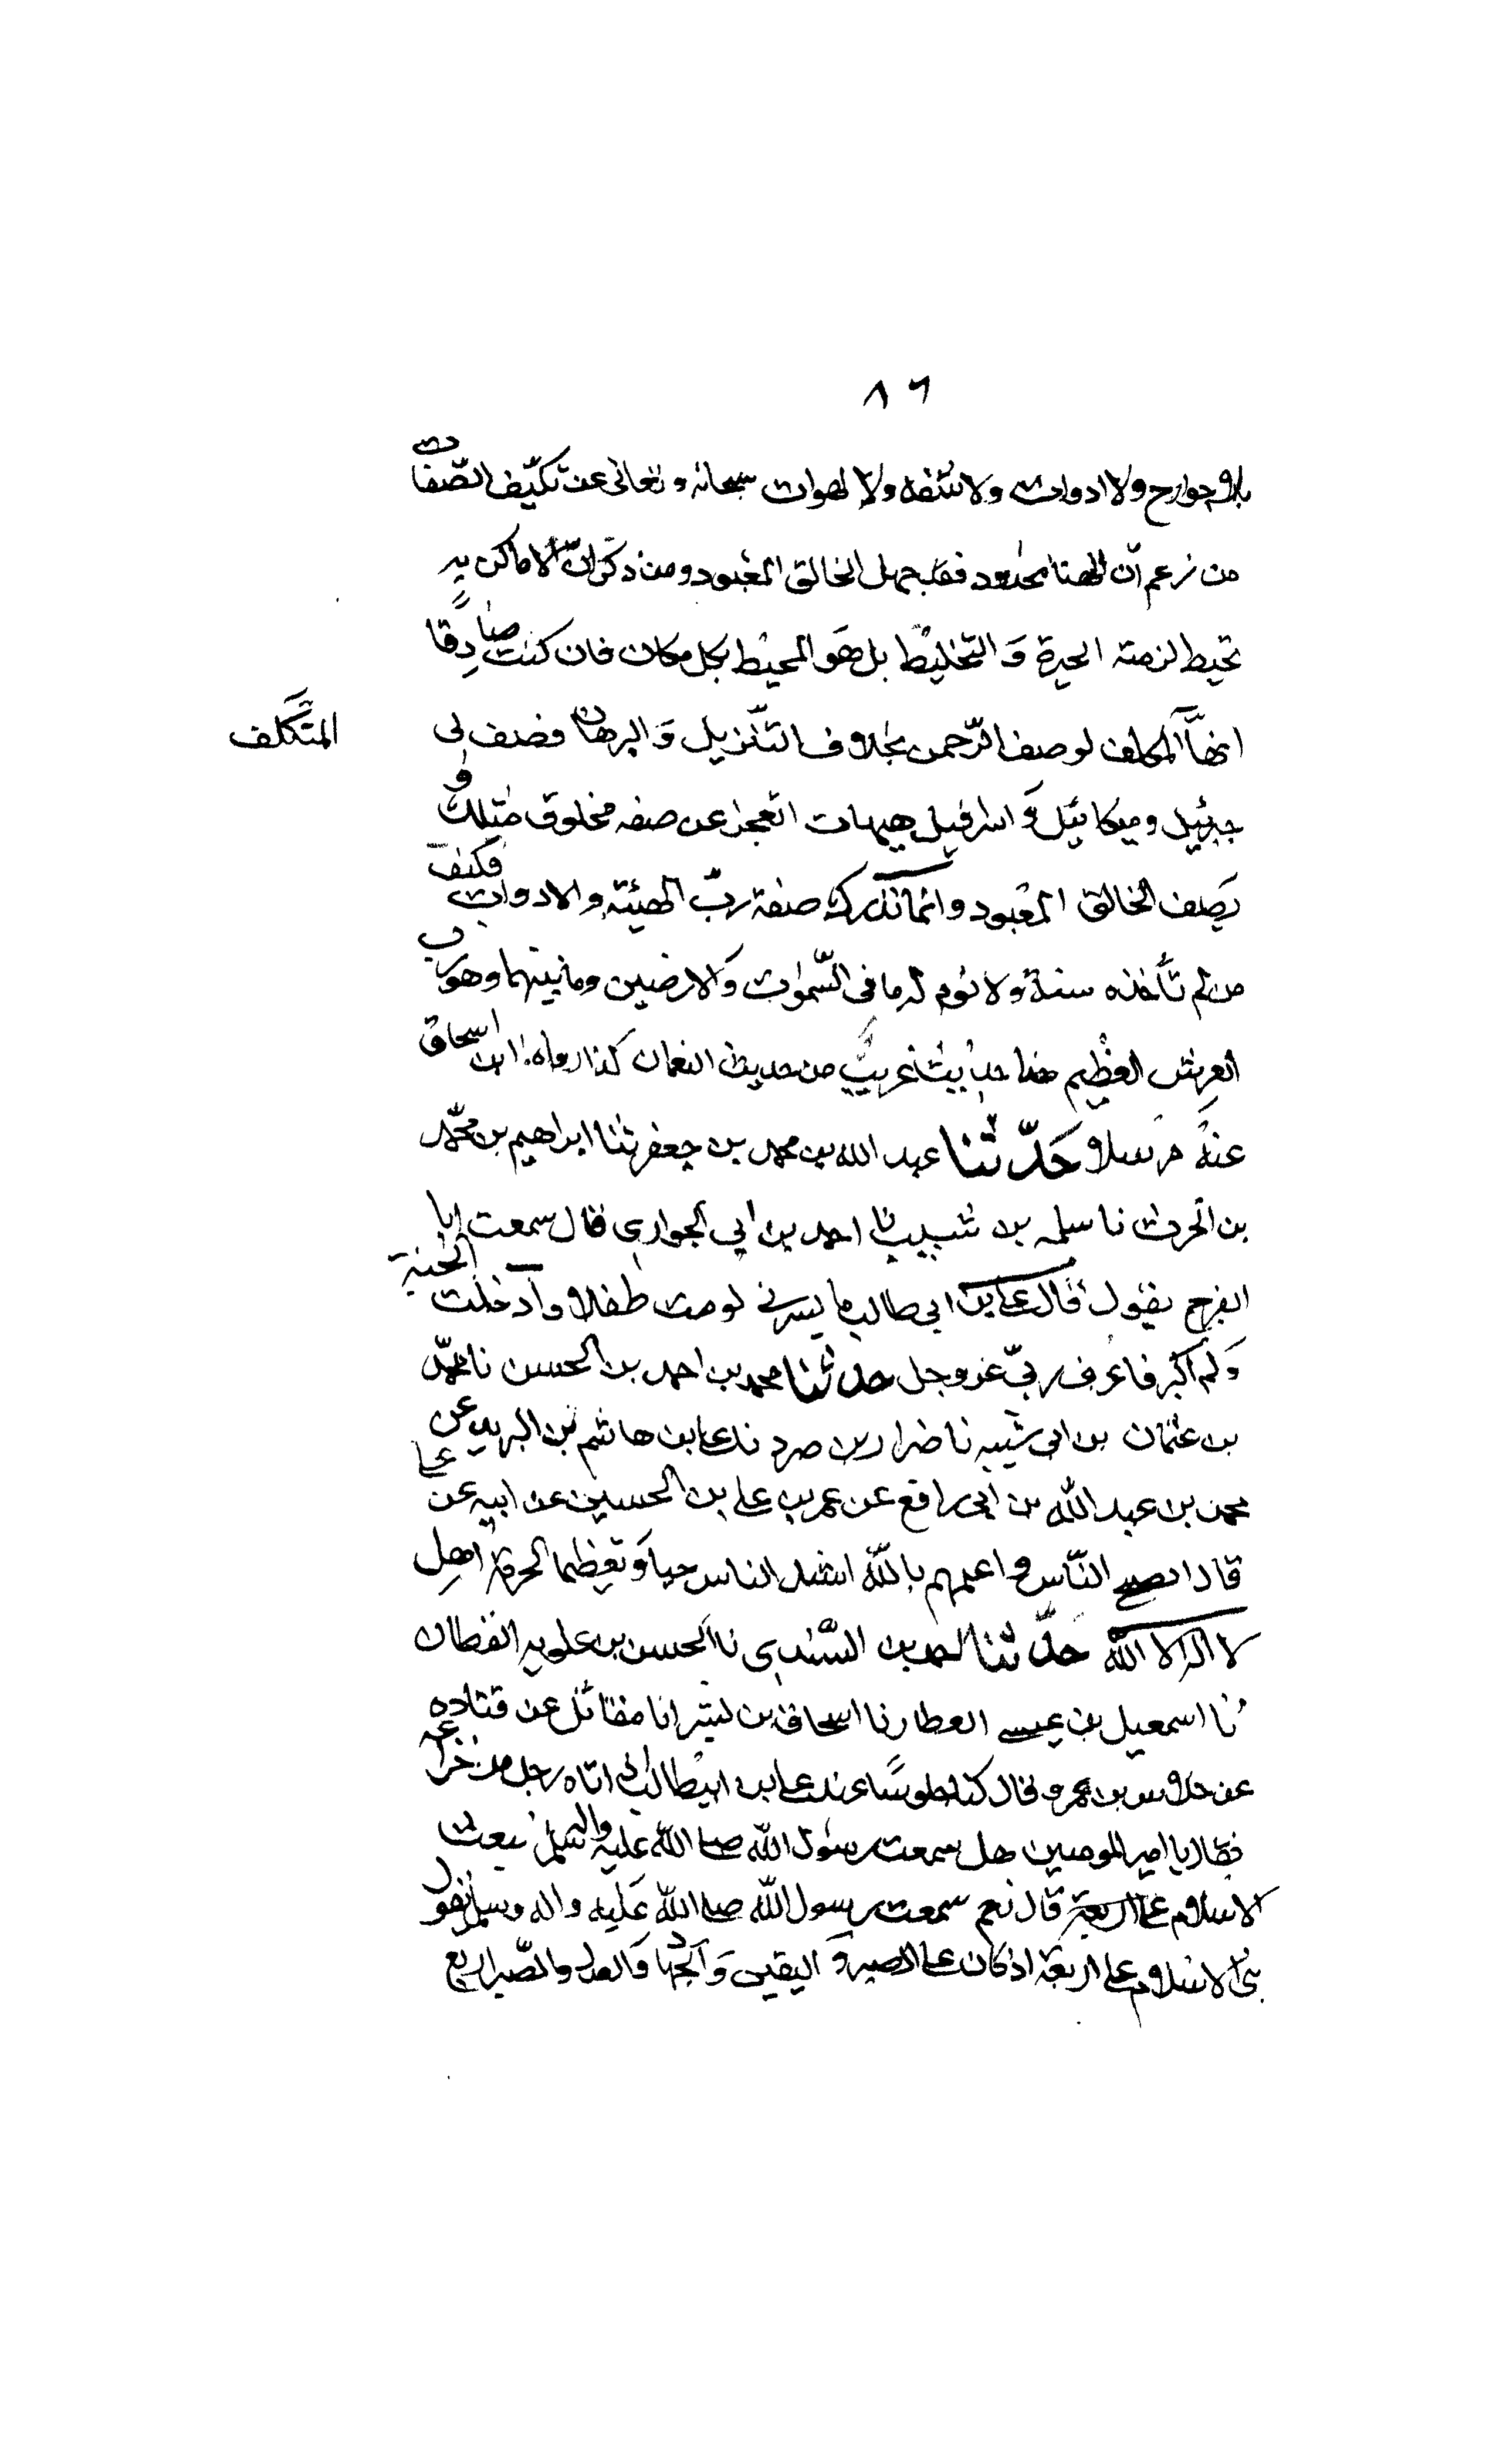 ٨٦
بلا جوارح ولا ادوات ولا شفة ولا لهوات سبحانه وتعالى عن تكيّف الصّفات
من زعم انّ الهنا محدود فقد جهل الخالق المعبود ومن ذكر انّ الاماكن به
تحيط لزمته الحيرة وَ التخليط بل هَو المحيط بكل مكان فان كنت صادِقًا
ايّهَا المتكلف لوصف الرّحمن بخلاف التّنزيل وَ البرهان فصف لى
المتَكَلف
جبرئيل وميكائيل وَ اسرافيل هيهات اتعجز عن صفه مخلوق مثلك و
يَصِف الخالق المعبود وانما تدرك صفة ربّ الهيئة والادوات فكيف
من لم تأخذه سنة ولا نوم له ما فى السّمٰوات وَ الارضين وما بينهما وهو رب
العرش العظيم هذا حديث غريبٌ من حديث النعمان كذا رواه ابن اسحاق
عنهُ مرسلا حَدّثنا عبد الله بن محمد بن جعفر ثنا ابراهيم بن محمّد
بن الحرث نا سلمه بن شبيب نا احمد بن ابي الحواري قال سمعت ابا
الفرج يقول قال على بن ابى طالب ما يسرنى لو مت طفلا وادخلت الجنة
وَلم اكبر فاعرف ربّي عز وجل حدثنا محمد بن احمد بن الحسن نا محمّد
بن عثمان بن ابى شيبه نا ضرار بن صرد نا على بن هاشم بن البريد عن
محمد بن عبد الله بن ابى رافع عن عمر بن على بن الحسين عن ابيه عن على
قال انصح النّاس و اعلمهم باللّه اشد الناس حبا وَ تعظيما لحرمة اهل
لا اله الا اللّه حَدّثنا احمد بن السّندى نا الحسن بن علويه القطان
نا اسمعيل بن عيسى العطار نا اسحاق بن بشر انا مقاتل عن قتاده
عن خلاس بن عمرو قال كنا جلوسًا عند على بن ابيطالب اذ اتاه رجل من خزاعه
فقال يا امير المومنين هل سمعت رسول اللّه صلى اللّه عليه واله وسلم ينعت
الاسلام على اربعة قال نعم سمعت رسول اللّه صلى اللّه عَليه واله وسلم يقول
بُنى الاسلام على اربعة اركان على الصبر وَ اليقين وَ الجهاد وَ العدل وللصّبر اربع